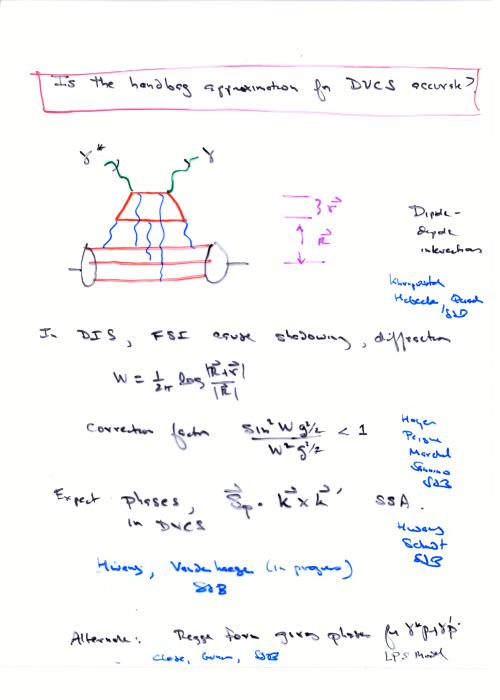 Is the handbag approximation for DVCS accurate?
γ* γ
} r⃗
R⃗
Dipole -
dipole
interactions
SJB
In DIS, FSI cause shadowing, diffraction
W = 1/2π log |R⃗+r⃗| / |R⃗|
Correction factor sin² W g²/2 / W² g²/2 < 1
Hoyer
Peigne
Marchal
Sannino
SJB
Expect phases, S⃗p · k⃗ × k⃗' SSA.
in DVCS
Hwang
Schmidt
SJB
Hwang, Vanderhaeghen (in progress)
SJB
Alternate: Regge form gives phase for γ*p→γp
Close, Gunion, SJB LPS Model